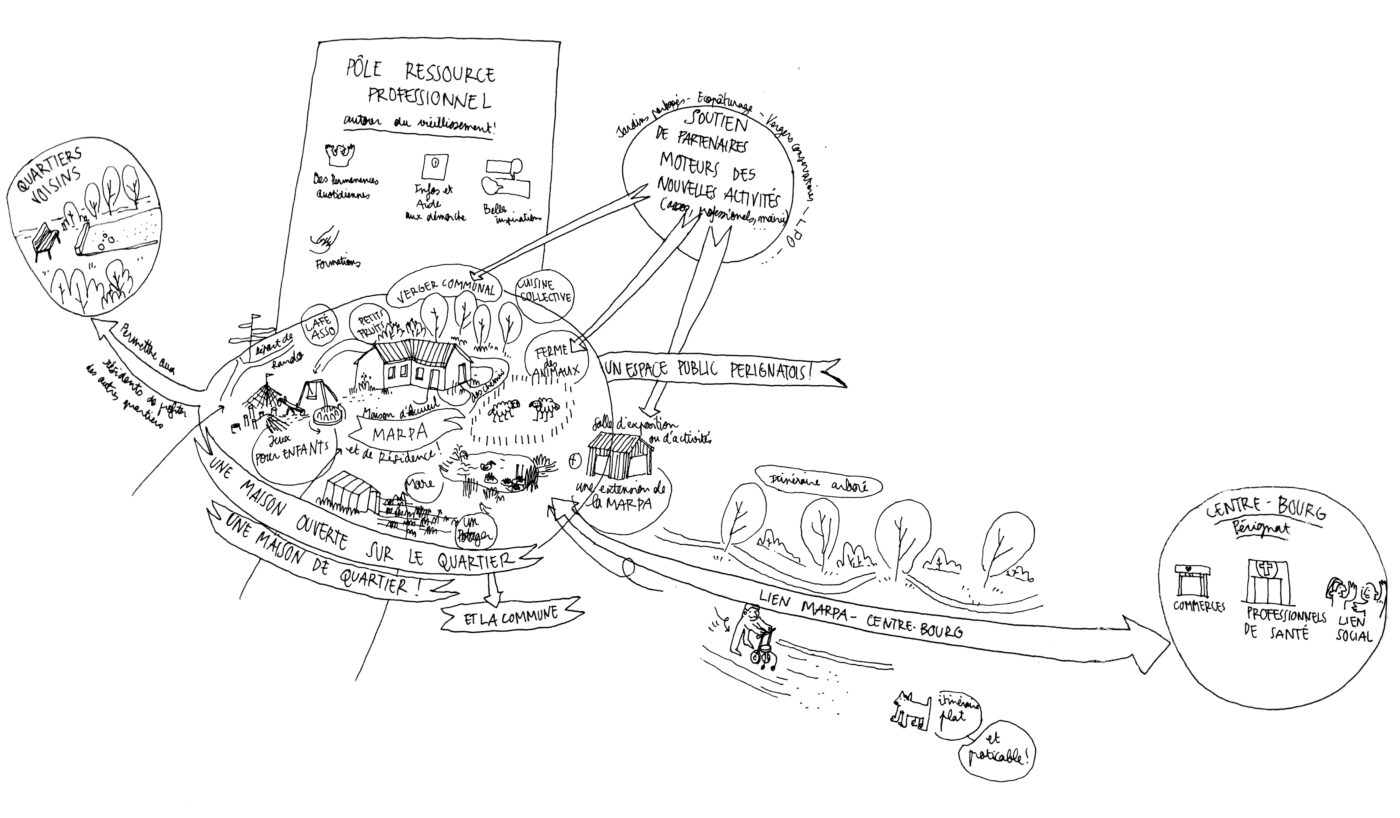 PÔLE RESSOURCE
PROFESSIONNEL
autour du vieillissement!
Des permanences
quotidiennes
Infos et
Aide
aux démarche
Belle
inspiration
Formations
QUARTIERS
VOISINS
Permettre aux
résidents de profiter
des autres quartiers
Jardins partagés - Ecopâturage - Vergers conservatoires - LPO
SOUTIEN
DE PARTENAIRES
MOTEURS DES
NOUVELLES ACTIVITÉS
(assos, professionnels, mairie)
VERGER COMMUNAL
CUISINE
COLLECTIVE
CAFÉ
ASSO
PETITS
FRUITS
départ de
rando
FERME
des
ANIMAUX
des chemins
UN ESPACE PUBLIC PERIGNATOIS!
Maison d'Accueil
MARPA
et de Résidence!
Jeux
POUR ENFANTS
Mare
un
Potager
Salle d'exposition
ou d'activités
+
une extension de
la MARPA
UNE MAISON OUVERTE SUR LE QUARTIER
UNE MAISON DE QUARTIER!
ET LA COMMUNE
Itinéraire arboré
LIEN MARPA - CENTRE-BOURG
itinéraire
plat
et
praticable!
CENTRE-BOURG
Pérignat
COMMERCES
PROFESSIONNELS
DE SANTÉ
LIEN
SOCIAL